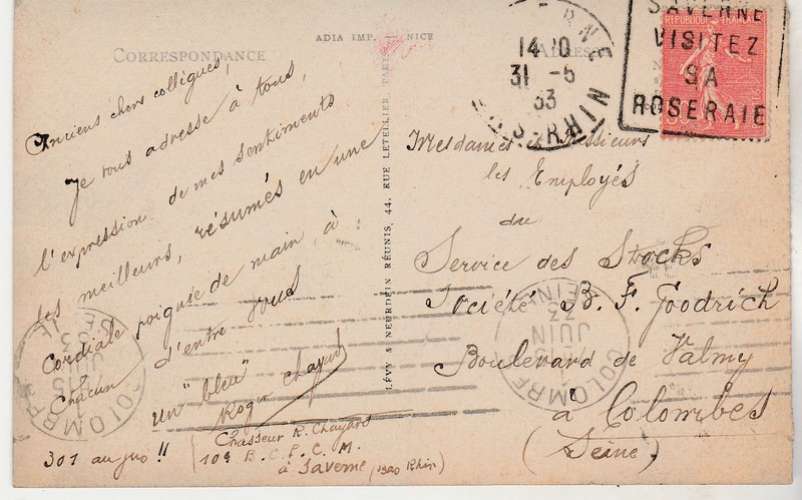 CORRESPONDANCE
ADIA IMP. NICE
ADRESSE
Anciens chers collègues,
Je vous adresse à tous,
l'expression de mes sentiments
les meilleurs, résumés en une
cordiale poignée de main à
chacun d'entre vous
un "bleu"
Roger
301 au jus !!
Chasseur R.
10e B. C. P. C. M.
à Saverne (Bas Rhin)
LÉVY & NEURDEIN RÉUNIS, 44, RUE LETELLIER, PARIS
14 10
31 - 5
33
SAVERNE
VISITEZ
SA
ROSERAIE
REPUBLIQUE FRANÇAISE
Mesdames et Messieurs
les Employés
du
Service des Stocks
Société B. F. Goodrich
Boulevard de Valmy
à Colombes
(Seine)
COLOMBES
JUIN
SEINE